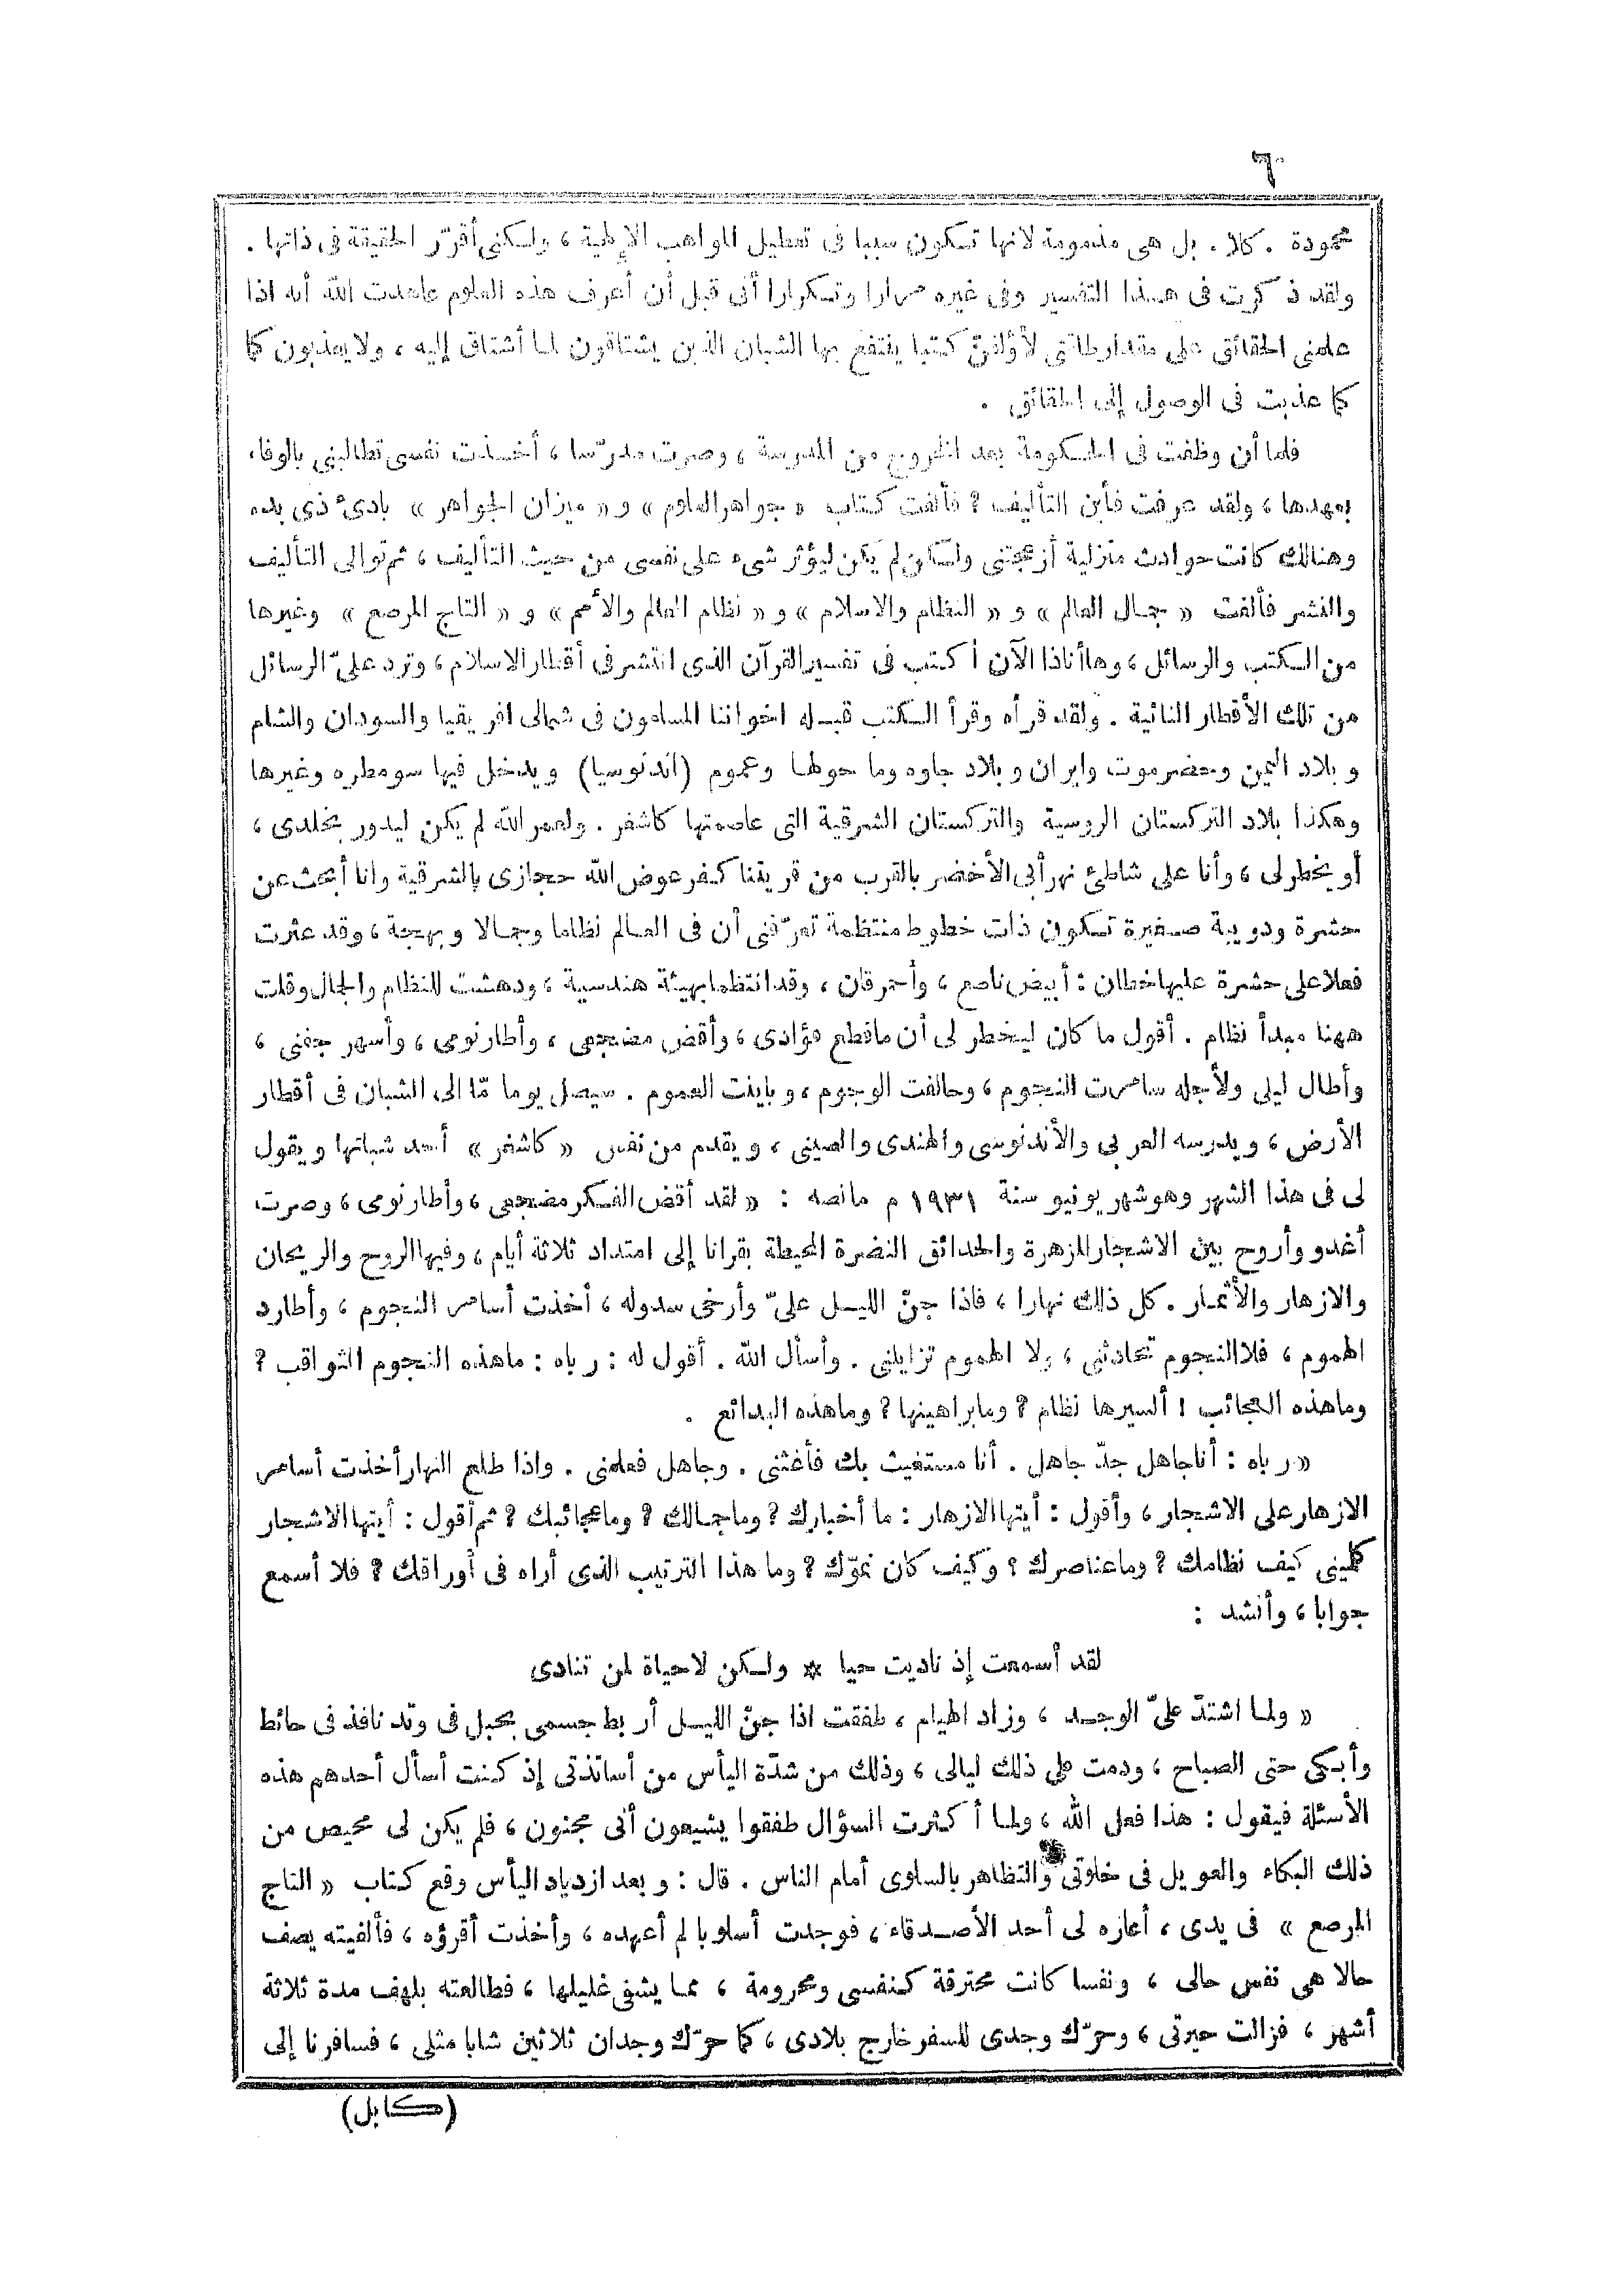 ٦٠
محمودة . كلا . بل هى مذمومة لانها تكون سببا فى تعطيل المواهب الإلهية ، ولكنى أقرّر الحقيقة فى ذاتها .
ولقد ذكرت فى هذا التفسير وفى غيره مرارا وتكرارا أنى قبل أن أعرف هذه العلوم عاهدت الله أنه اذا
علمنى الحقائق على مقدار طاقتى لأؤلفنّ كتبا ينتفع بها الشبان الذين يشتاقون لما أشتاق إليه ، ولا يعذبون كما
كما عذبت فى الوصول إلى الحقائق .
فلما أن وظفت فى الحكومة بعد الخروج من المدرسة ، وصرت مدرّسا ، أخذت نفسى تطالبنى بالوفاء
بعهدها ، ولقد عرفت فأين التأليف ؟ فألفت كتاب « جواهر العلوم » و « ميزان الجواهر » بادئ ذى بدء
وهنالك كانت حوادث منزلية أزعجتنى ولكن لم يكن ليؤثر شىء على نفسى من حيث التأليف ، ثم توالى التأليف
والنشر فألفت « جمال العالم » و « النظام والاسلام » و « نظام العالم والأمم » و « التاج المرصع » وغيرها
من الكتب والرسائل ، وها أناذا الآن أكتب فى تفسير القرآن الذى انتشر فى أقطار الاسلام ، وترد علىّ الرسائل
من تلك الأقطار النائية . ولقد قرأه وقرأ الكتب قبله اخواننا المسلمون فى شمالى افريقيا والسودان والشام
وبلاد اليمن وحضرموت وايران وبلاد جاوه وما حولها وعموم (اندنوسيا) ويدخل فيها سومطره وغيرها
وهكذا بلاد التركستان الروسية والتركستان الشرقية التى عاصمتها كاشغر . ولعمر الله لم يكن ليدور بخلدى ،
أو يخطر لى ، وأنا على شاطئ نهر أبى الأخضر بالقرب من قريتنا كفر عوض الله حجازى بالشرقية وانا أبحث عن
حشرة ودويبة صغيرة تكون ذات خطوط منتظمة تعرّفنى أن فى العالم نظاما وجمالا وبهجة ، وقد عثرت
فعلا على حشرة عليها خطان : أبيض ناصع ، وأحمر قان ، وقد انتظما بهيئة هندسية ، ودهشت للنظام والجمال وقلت
ههنا مبدأ نظام . أقول ما كان ليخطر لى أن ما قطع فؤادى ، وأقض مضجعى ، وأطار نومى ، وأسهر جفنى ،
وأطال ليلى ولأجله سامرت النجوم ، وحالفت الوجوم ، وباينت العموم . سيصل يوما مّا الى الشبان فى أقطار
الأرض ، ويدرسه العربى والأندنوسى والهندى والصينى ، ويقدم من نفس « كاشغر » أحد شبانها ويقول
لى فى هذا الشهر وهو شهر يونيو سنة ١٩٣١ م مانصه : « لقد أقض الفكر مضجعى ، وأطار نومى ، وصرت
أغدو وأروح بين الاشجار المزهرة والحدائق النضرة المحيطة بقرانا إلى امتداد ثلاثة أيام ، وفيها الروح والريحان
والازهار والأثمار . كل ذلك نهارا ، فاذا جنّ الليل علىّ وأرخى سدوله ، أخذت أسامر النجوم ، وأطارد
الهموم ، فلا النجوم تحادثنى ، ولا الهموم تزايلنى . وأسأل الله . أقول له : رباه : ماهذه النجوم الثواقب ؟
وماهذه العجائب ! ألسيرها نظام ؟ ومابراهينها ؟ وماهذه البدائع .
« رباه : أنا جاهل جدّ جاهل . أنا مستغيث بك فأغثنى . وجاهل فعلمنى . واذا طلع النهار أخذت أسامر
الازهار على الاشجار ، وأقول : أيتها الازهار : ما أخبارك ؟ وماجمالك ؟ وماعجائبك ؟ ثم أقول : أيتها الاشجار
كلمينى كيف نظامك ؟ وماعناصرك ؟ وكيف كان نموّك ؟ وما هذا الترتيب الذى أراه فى أوراقك ؟ فلا أسمع
جوابا ، وأنشد :
لقد أسمعت إذ ناديت حيا * ولكن لاحياة لمن تنادى
« ولما اشتدّ علىّ الوجد ، وزاد الهيام ، طفقت اذا جنّ الليل أربط جسمى بحبل فى وتد نافذ فى حائط
وأبكى حتى الصباح ، ودمت على ذلك ليالى ، وذلك من شدّة اليأس من أساتذتى إذ كنت أسأل أحدهم هذه
الأسئلة فيقول : هذا فعل الله ، ولما أكثرت السؤال طفقوا يشيعون أنى مجنون ، فلم يكن لى محيص من
ذلك البكاء والعويل فى خلوتى والتظاهر بالسلوى أمام الناس . قال : وبعد ازدياد اليأس وقع كتاب « التاج
المرصع » فى يدى ، أعاره لى أحد الأصدقاء ، فوجدت أسلوبا لم أعهده ، وأخذت أقرؤه ، فألفيته يصف
حالا هى نفس حالى ، ونفسا كانت محترقة كنفسى ومحرومة ، مما يشفى غليلها ، فطالعته بلهف مدة ثلاثة
أشهر ، فزالت حيرتى ، وحرّك وجدى للسفر خارج بلادى ، كما حرّك وجدان ثلاثين شابا مثلى ، فسافرنا إلى
(كابل)